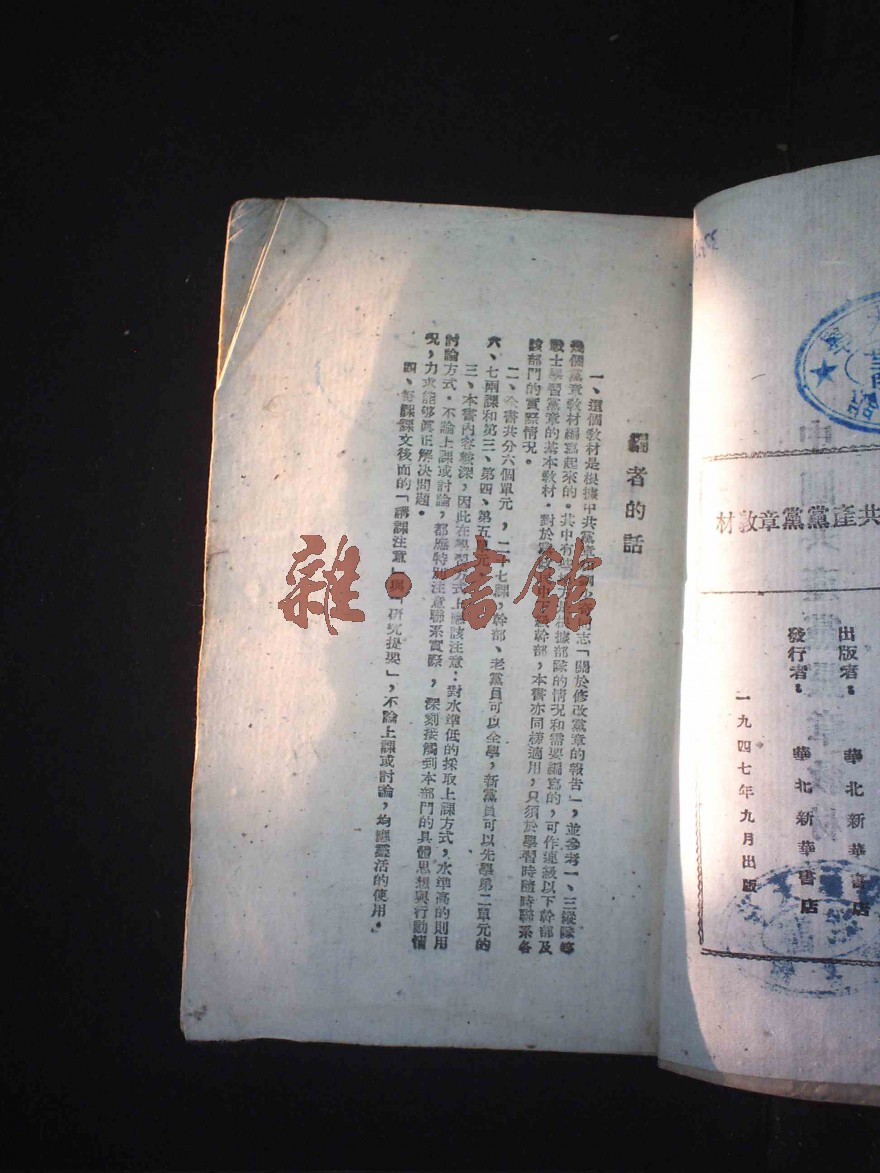 共產黨黨章教材
出版者：華北新華書店
發行者：華北新華書店
一九四七年九月出版
編者的話
一、這個教材是根據中共黨章
志「關於修改黨章的報告」，並參考一、三縱隊等
幾個黨章教材編寫起來的。其中有些
根據部隊的情況和需要編寫的，可作連級以下幹部及
戰士學習黨章的基本教材。對於
幹部，本書亦同樣適用，只須於學習時隨時聯系各
該部門的實際情況。
二、全書共分六個單元，二十七課，幹部、老黨員可以全學，新黨員可以先學第二單元的
六、七兩課和第三、第四、第五單元
三、本書內容較深，因此在學習方式上應該注意：對水準低的採取上課方式，水準高的則用
討論方式。不論上課或討論，都應特別注意聯系實際，深刻接觸到本部門的具體思想與行動情
況，力求能夠真正解決問題。
四、每課課文後面的「講課注意」與「研究提要」，不論上課或討論，均應靈活的使用。
雜·書館